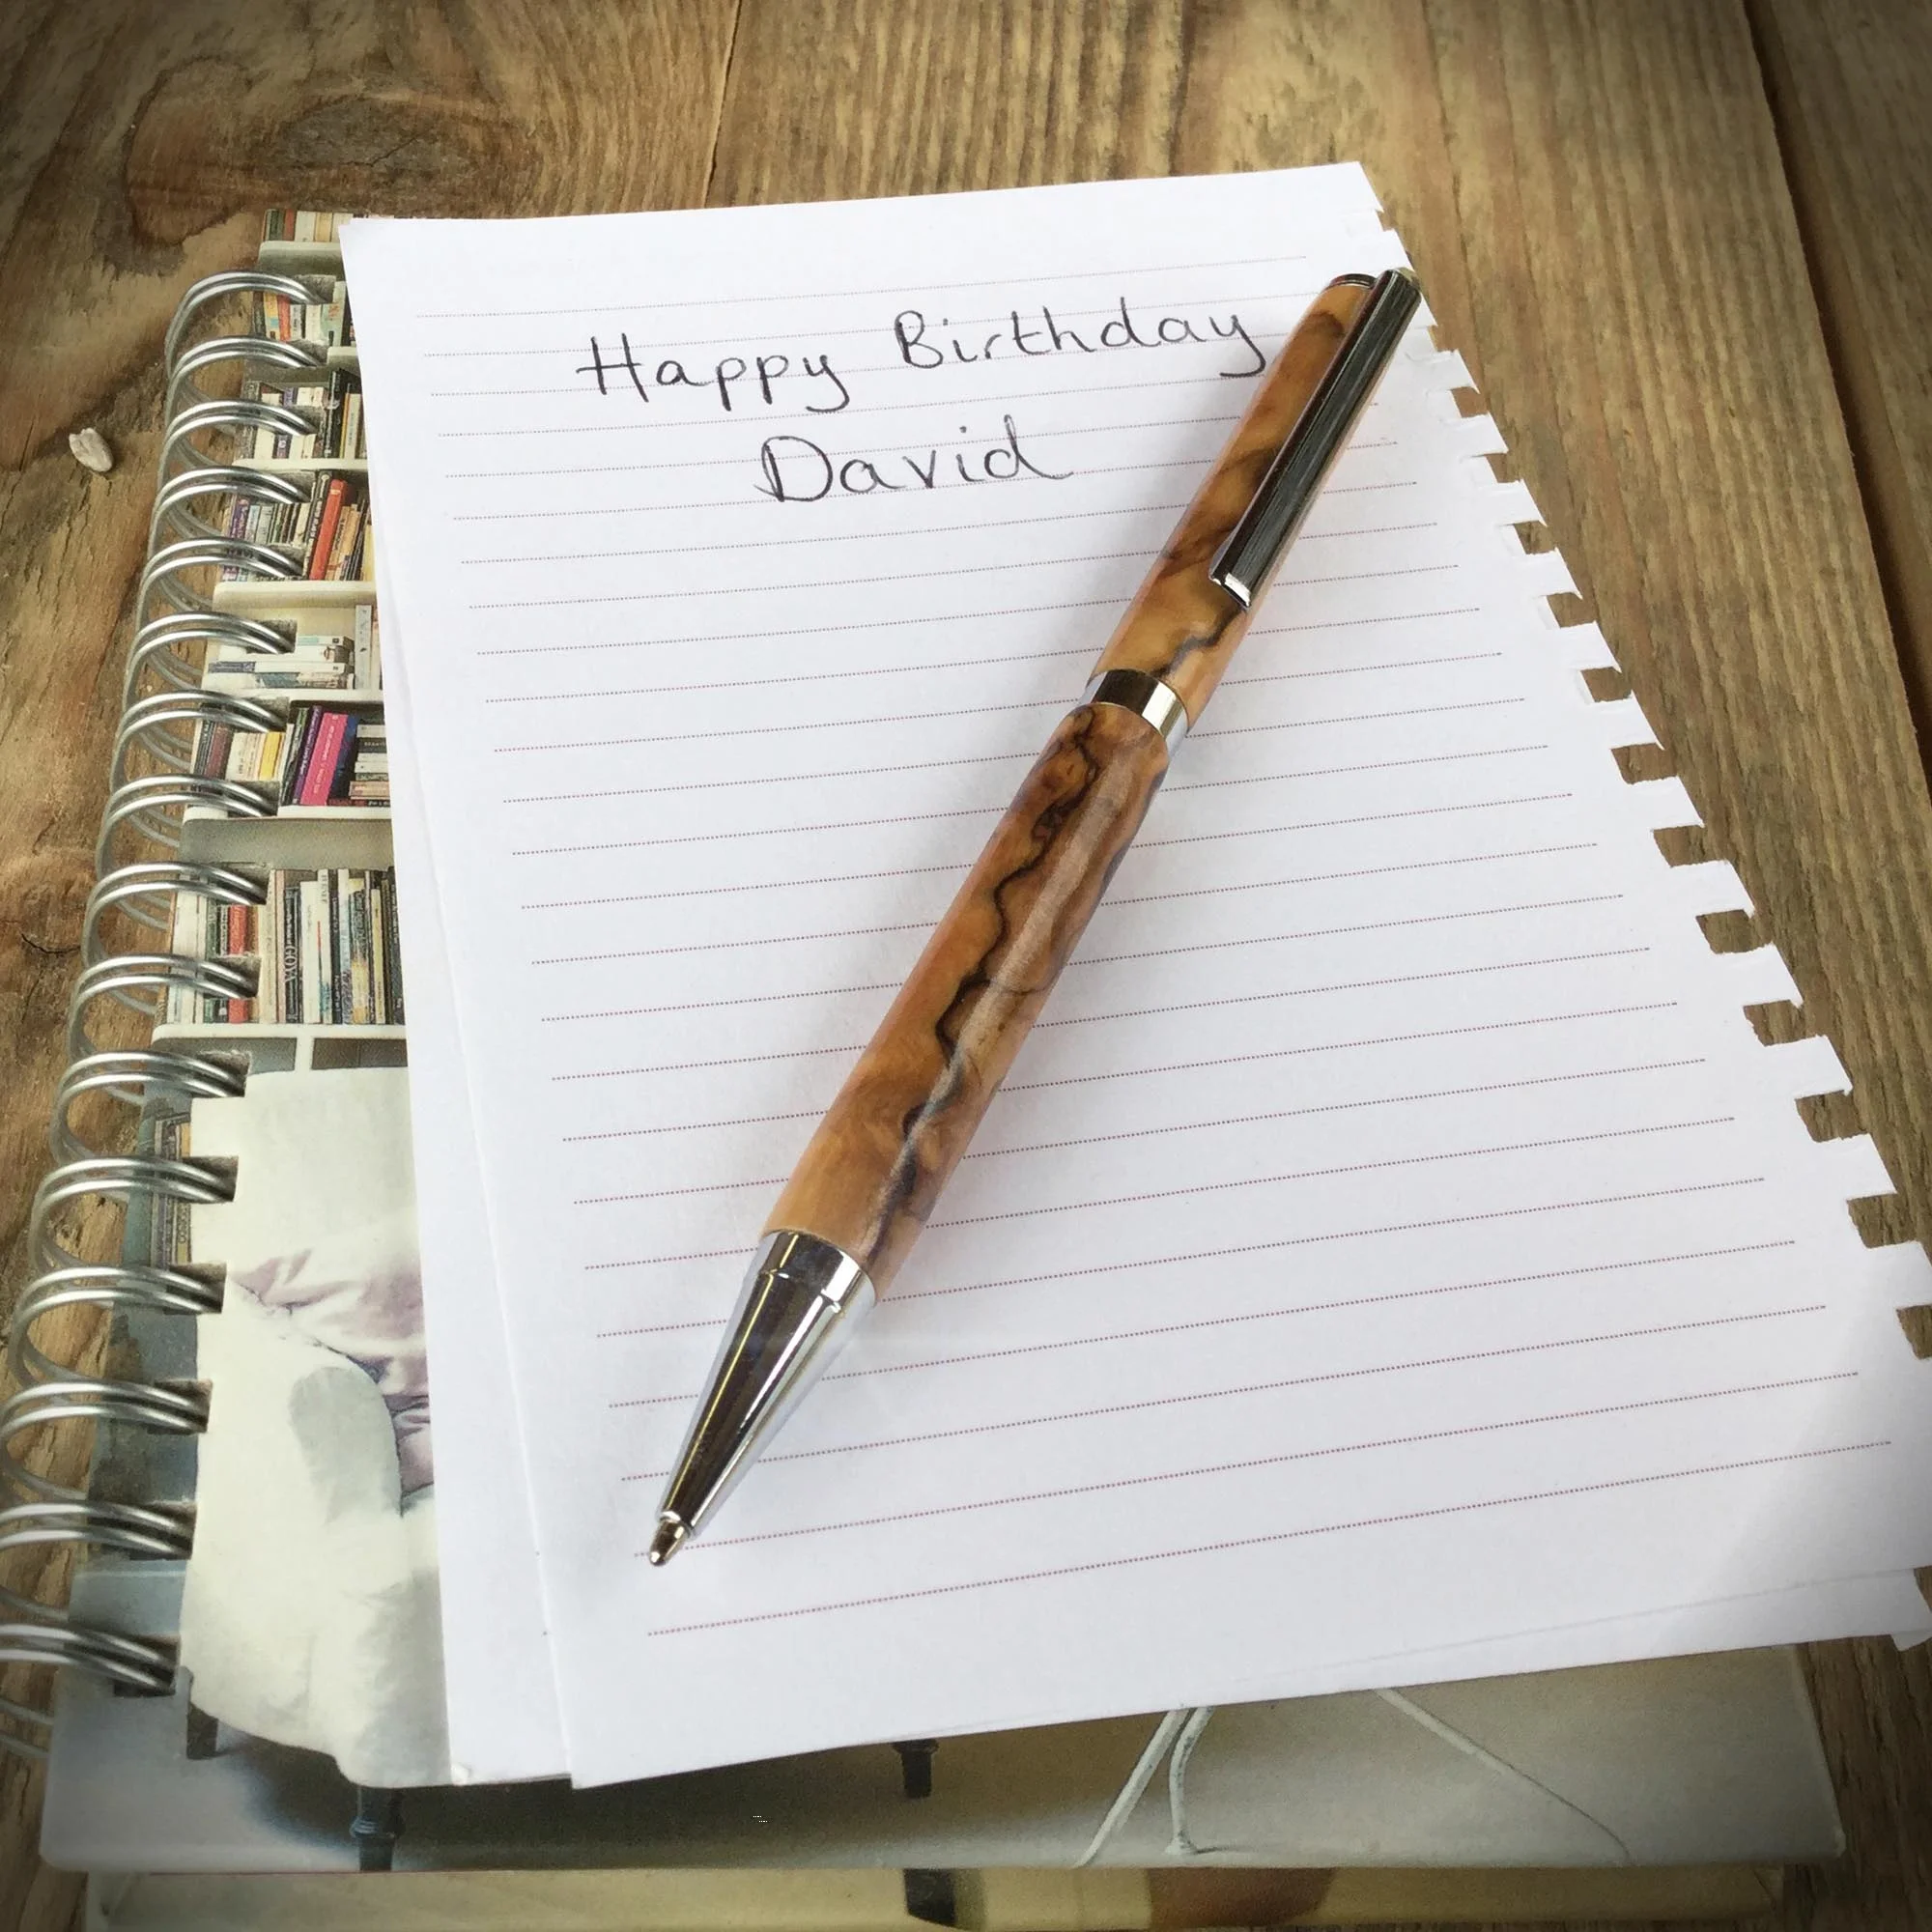 Happy Birthday
David